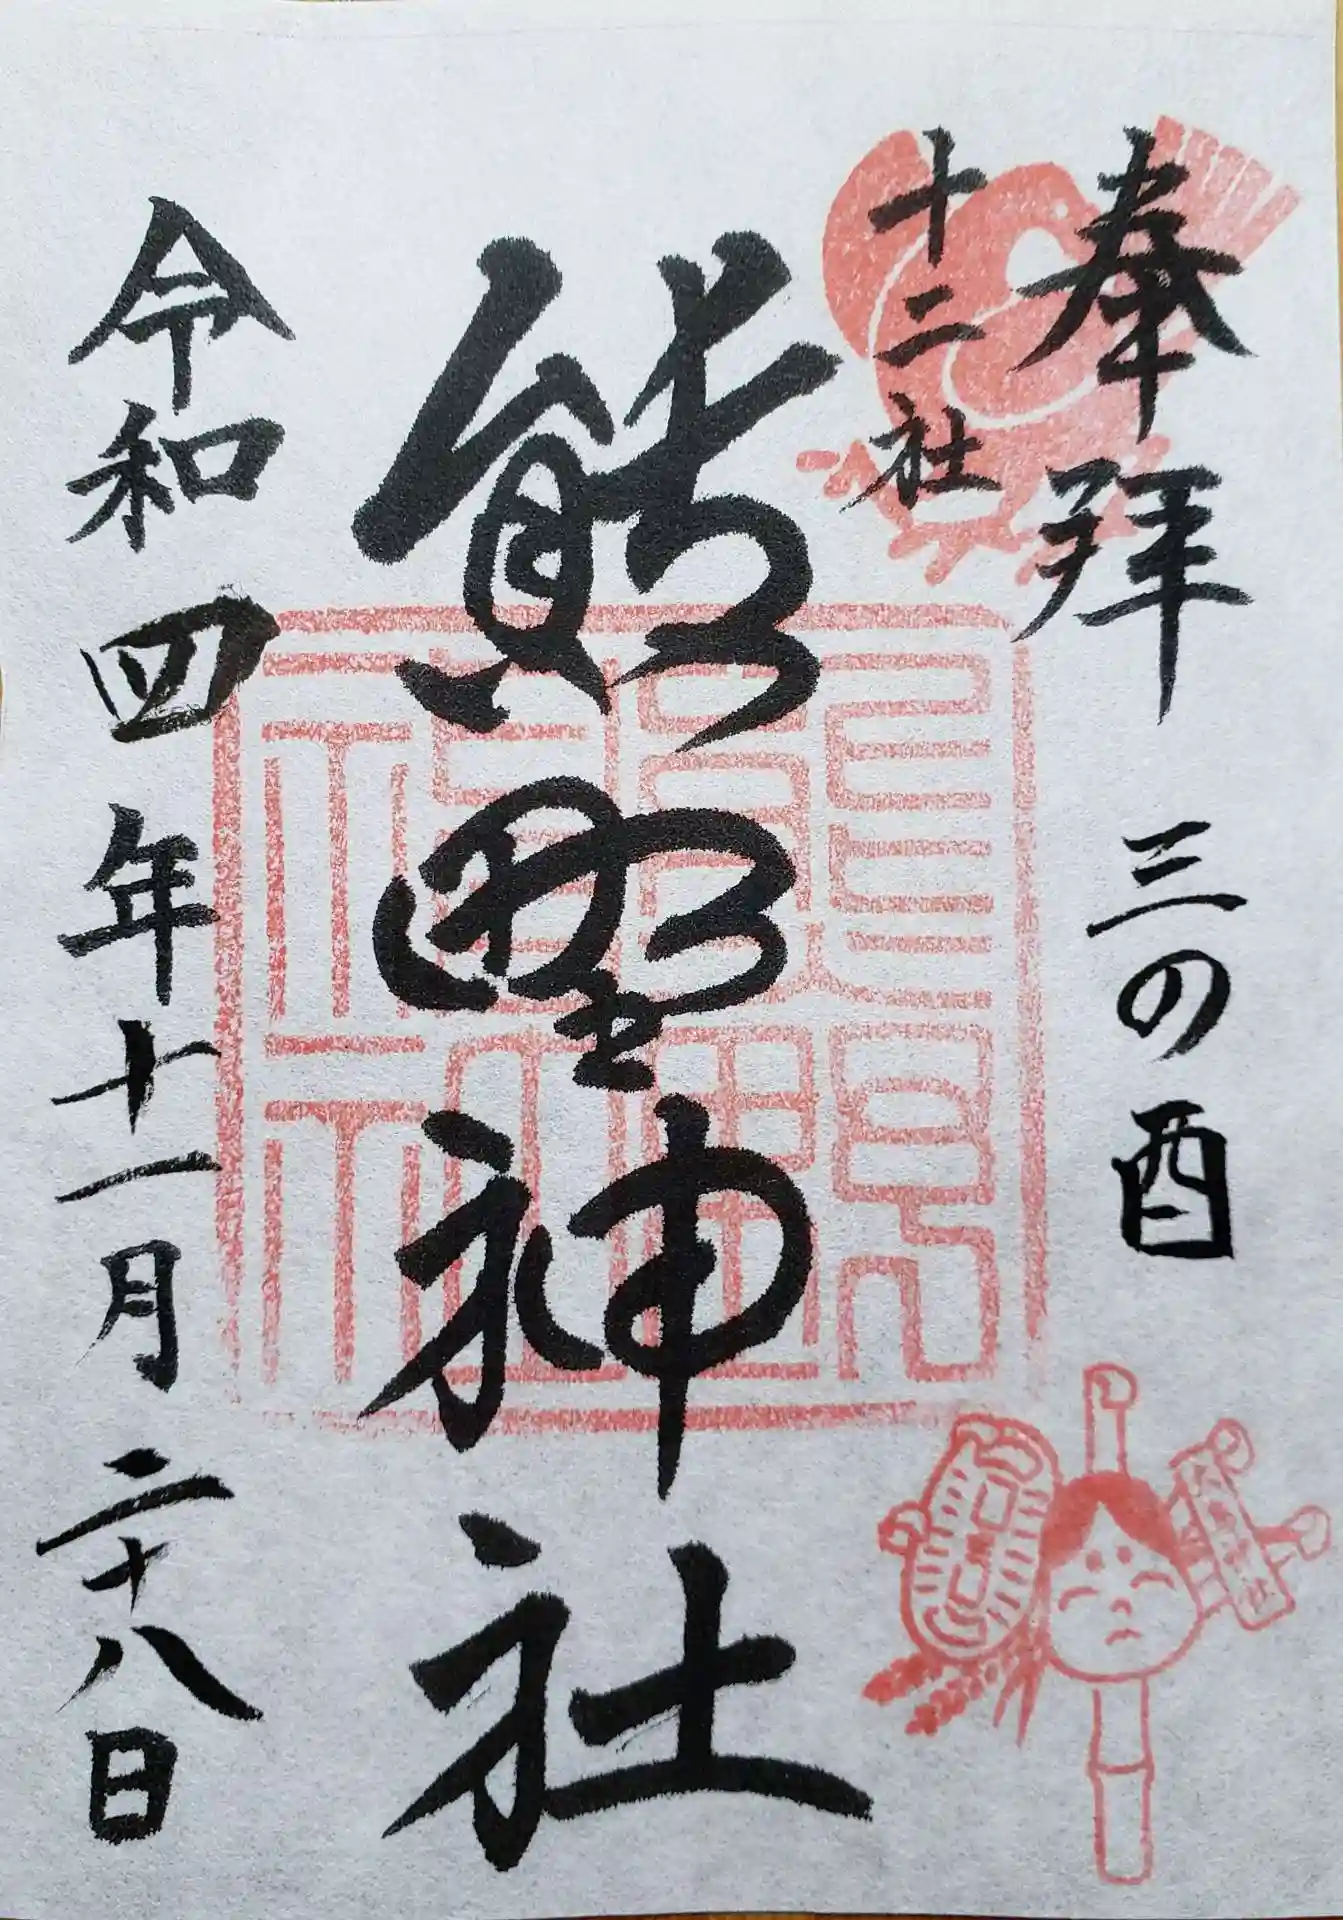 奉拝 三の酉
十二社
熊野神社
令和四年十一月二十八日